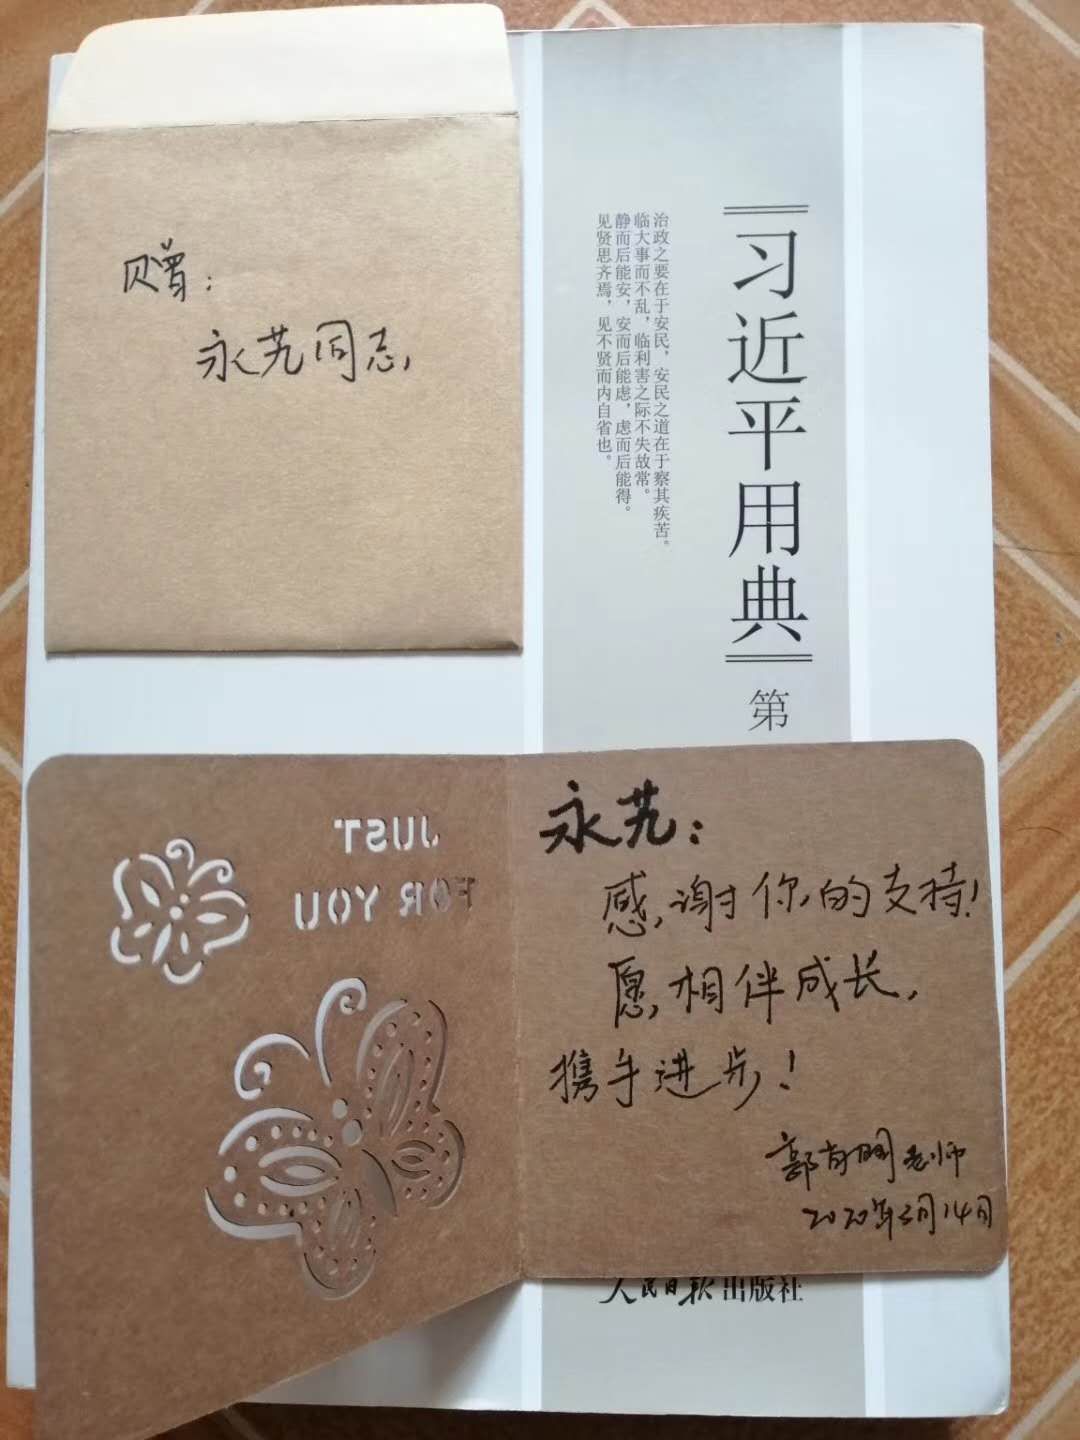 赠：
永艽同志，
治政之要在于安民，安民之道在于察其疾苦。
临大事而不乱，临利害之际不失故常。
静而后能安，安而后能虑，虑而后能得。
见贤思齐焉，见不贤而内自省也。
习近平用典
第
JUST
FOR YOU
永艽：
感谢你的支持！
愿相伴成长，
携手进步！
老师
2020年3月14日
人民日报出版社